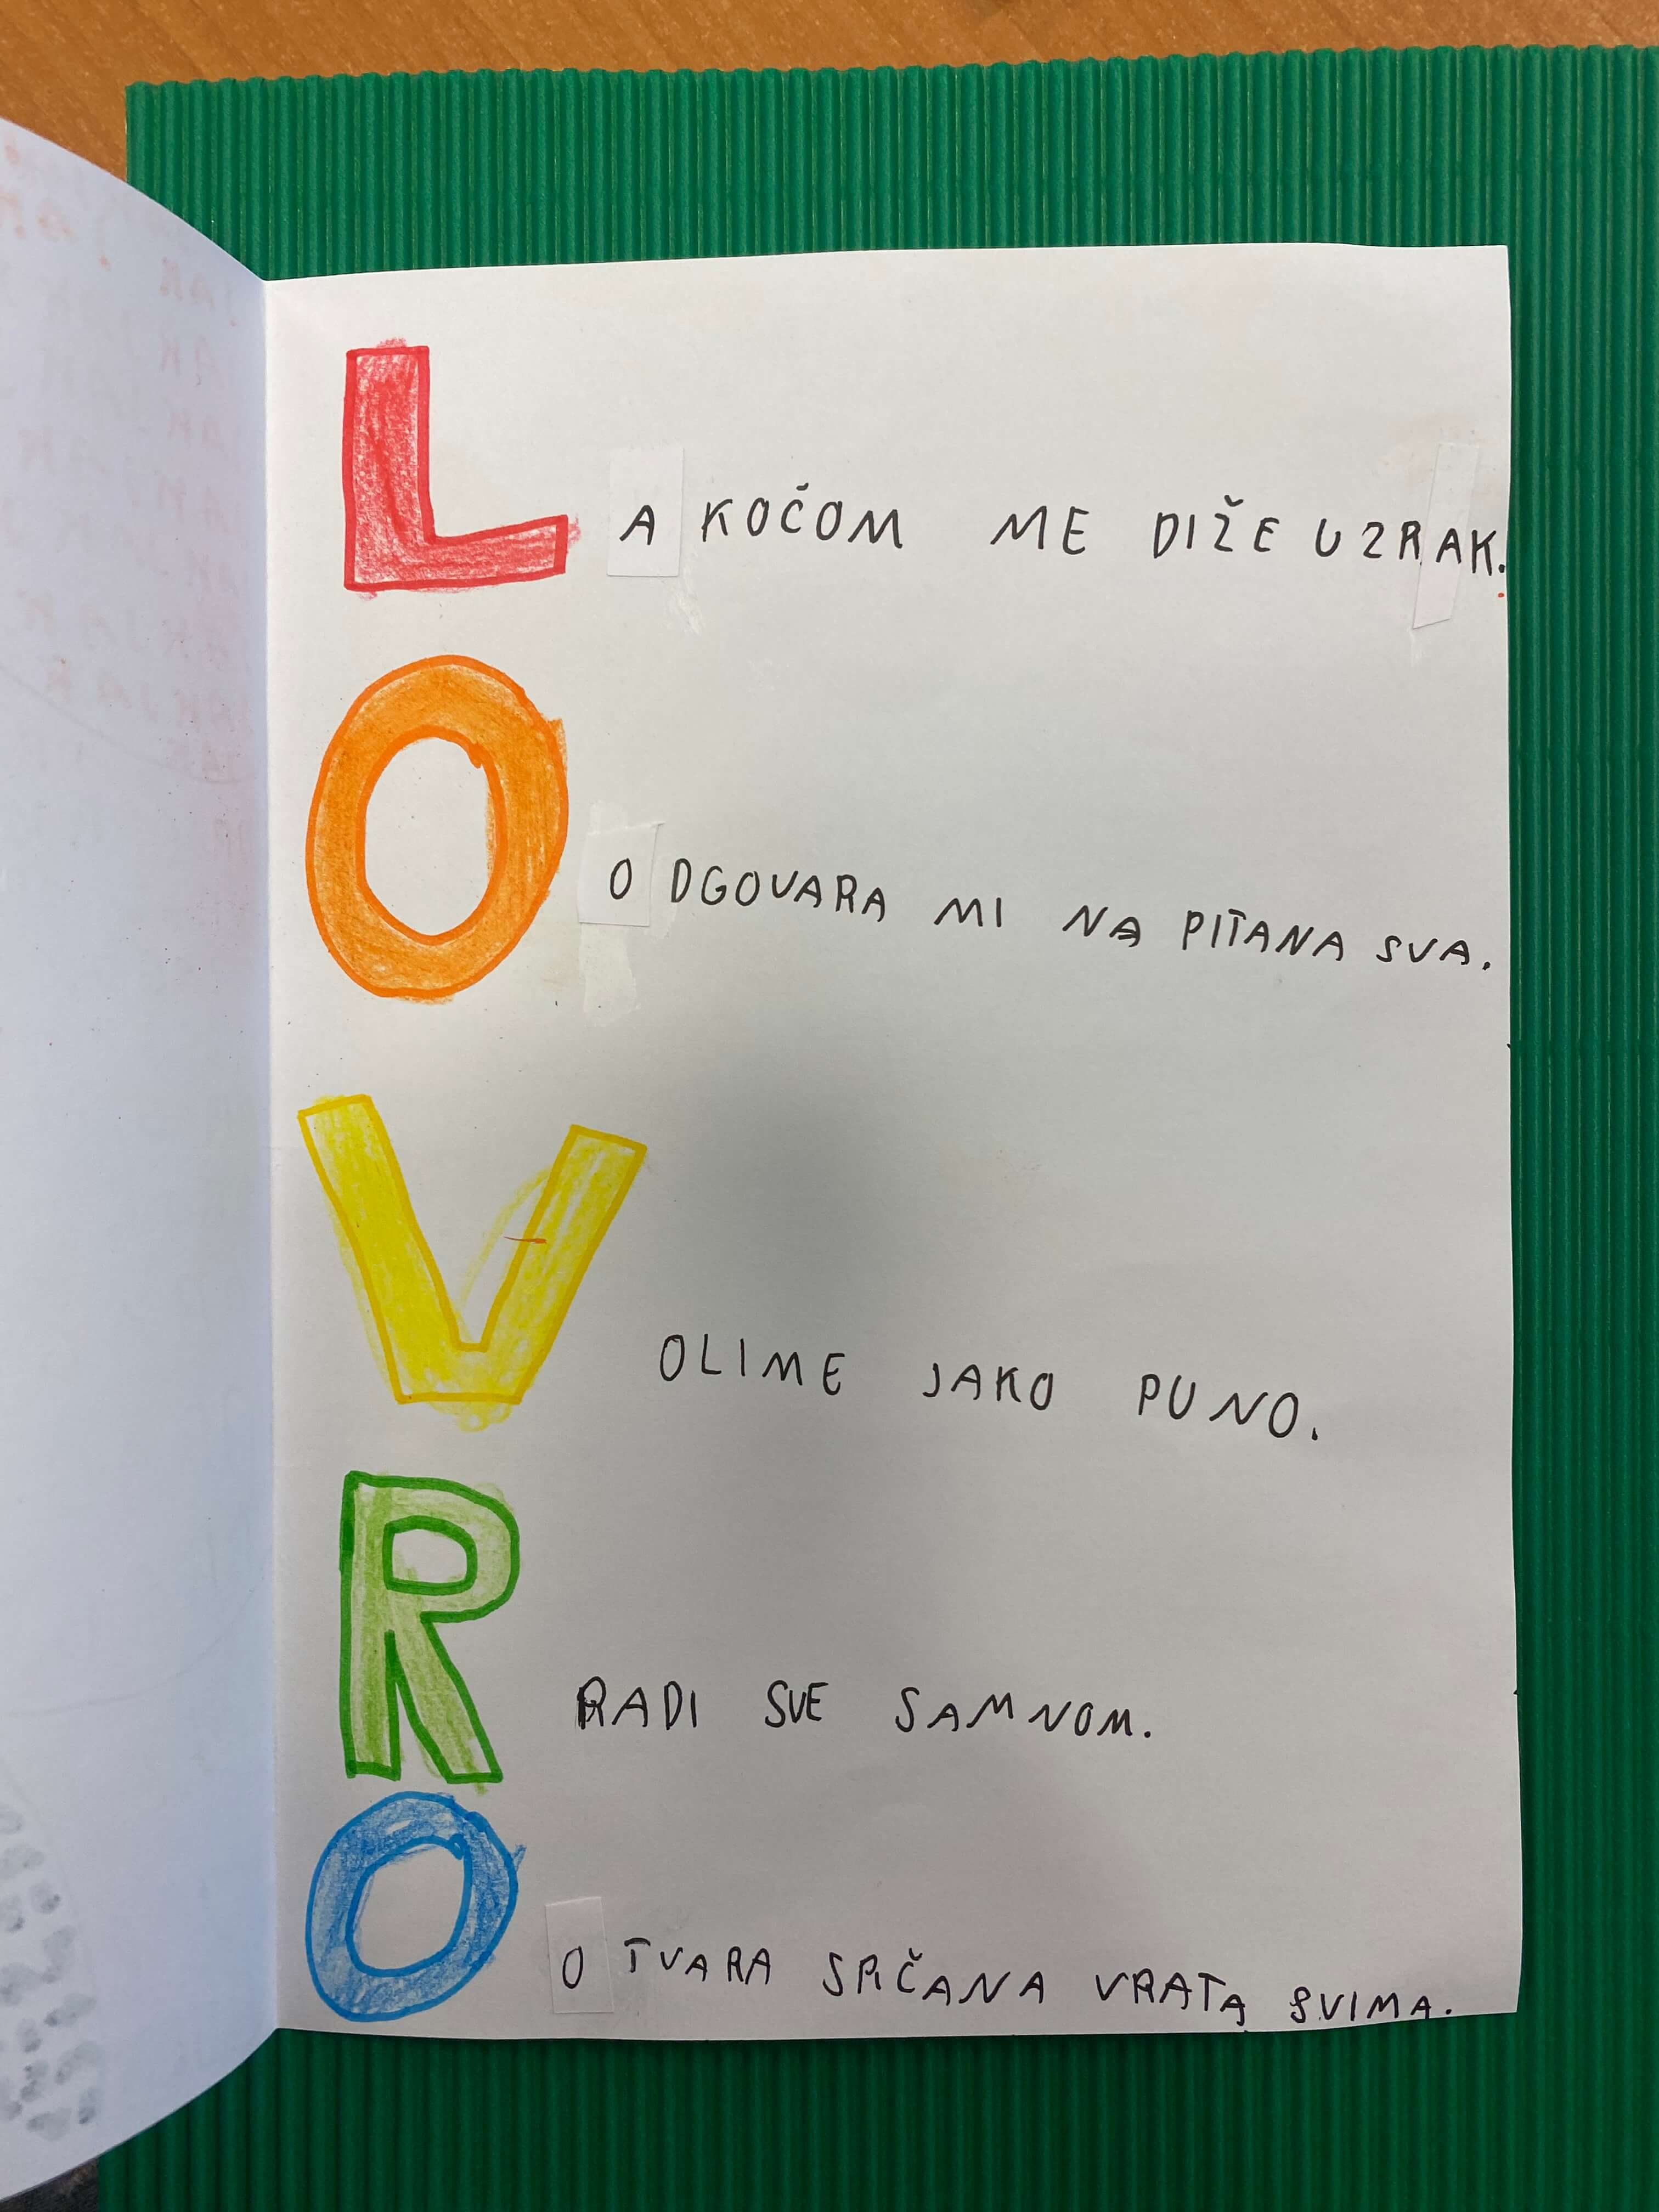 L A KOČOM ME DIŽE U ZRAK.
O O DGOVARA MI NA PITANA SVA.
V OLIME JAKO PUNO.
R RADI SVE SAMNOM.
O O TVARA SRČANA VRATA SVIMA.